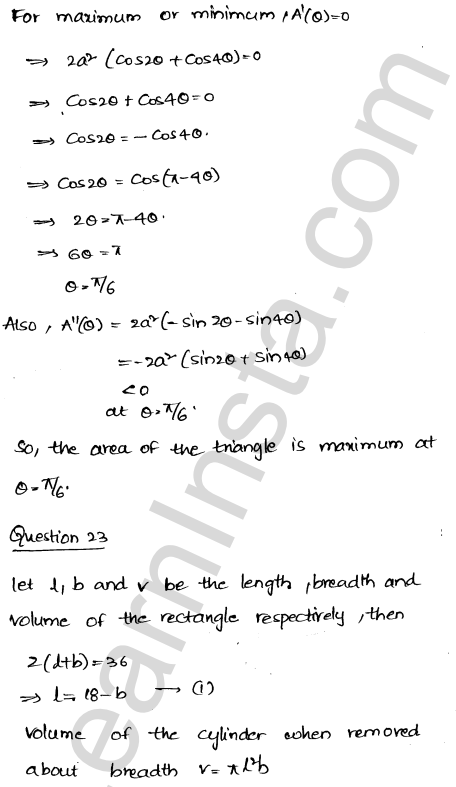 For maximum or minimum, A'(θ)=0
⇒ 2a² (cos2θ + cos4θ)=0
⇒ cos2θ + cos4θ=0
⇒ cos2θ = - cos4θ.
⇒ cos2θ = cos(π-4θ)
⇒ 2θ=π-4θ.
⇒ 6θ=π
θ=π/6
Also, A''(θ) = 2a²(-sin 2θ - sin4θ)
=-2a² (sin2θ + sin4θ)
<0
at θ=π/6.
So, the area of the triangle is maximum at
θ=π/6.
Question 23
let l, b and v be the length, breadth and
volume of the rectangle respectively, then
2(l+b)=36
⇒ l= 18-b → (1)
volume of the cylinder when removed
about breadth v= πl²b
earnInsta.com